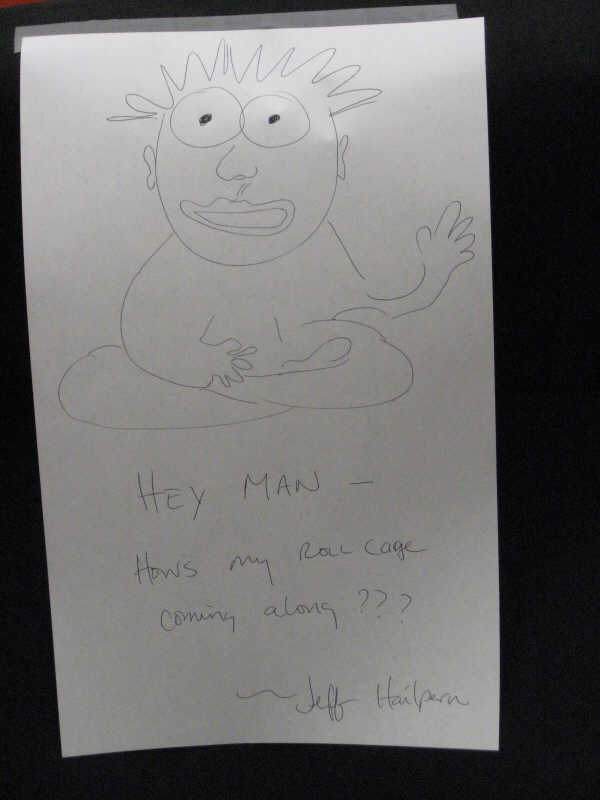 HEY MAN —
HOWS my ROLL CAGE
coming along ???
~ Jeff Hailpern